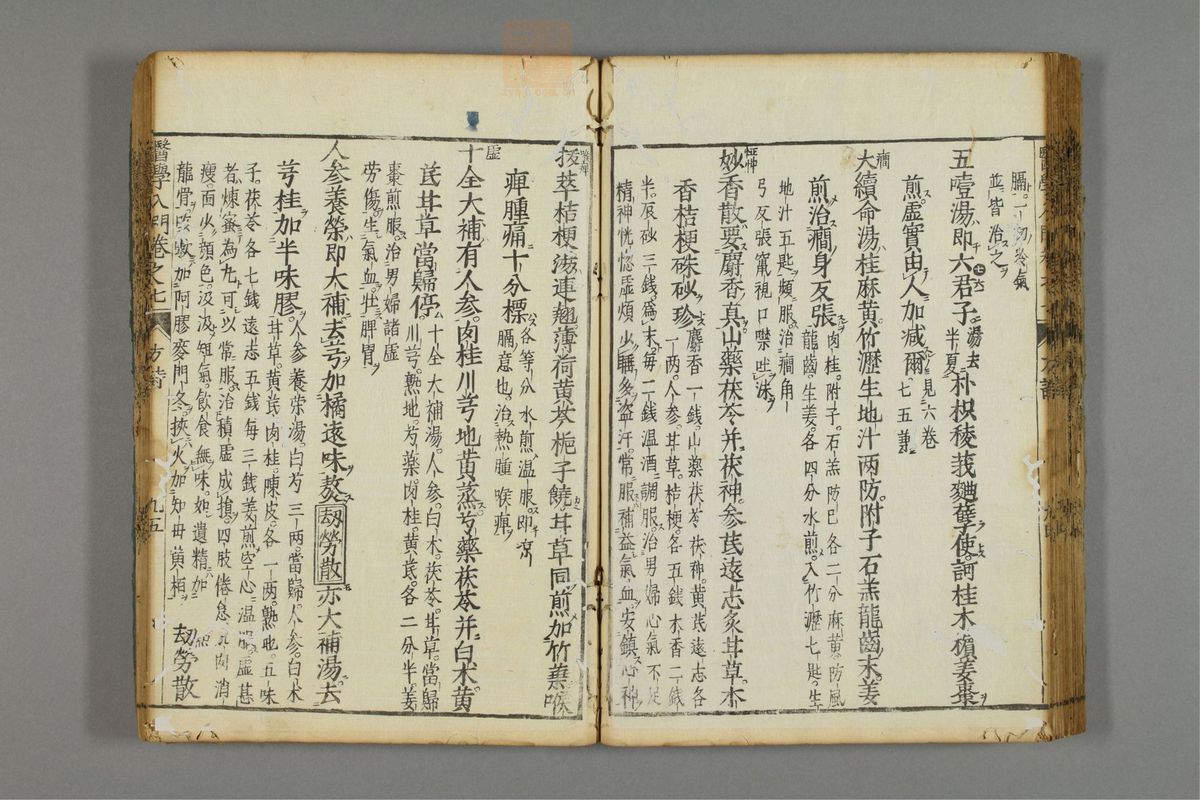 膈一切冷氣
並皆治之
五噎湯即六君子湯去半夏朴枳稜莪麯蘗子使訶桂木檳姜棗
煎虛實由人加減爾見六卷七五萆
癎
大續命湯桂麻黃竹瀝生地汁兩防附子石羔龍齒末姜
煎治癎身反張肉桂附子石羔防已各二分麻黃防風龍齒生姜各四分水煎入竹瀝七匙生
地汁五匙頻服治癎角
弓反張竄視口噤吐沫
怔忡
妙香散要麝香真山藥茯苓并茯神參芪遠志炙甘草木
香桔梗硃砂珍麝香一錢山藥茯苓茯神黃芪遠志各一兩人參甘草桔梗各五錢木香二錢
半辰砂三錢爲末每二錢溫酒調服治男婦心氣不足
精神恍惚虛煩少睡多盗汗常服補益氣血安鎮心神
拔萃桔梗湯連翹薄荷黃芩梔子饒甘草同煎加竹葉喉
痺腫痛十分標各等分水煎溫服即
膈意也治熱腫喉痺
虛
十全大補有人參肉桂川芎地黃蒸芍藥茯苓并白朮黃
芪甘草當歸停十全大補湯人參白朮茯苓甘草當歸川芎熟地芍藥肉桂黃芪各二分半姜
棗煎服治男婦諸虛
勞傷生氣血壯脾胃
人參養榮即大補去芎加橘遠味熬劫勞散亦大補湯去
芎桂加半味膠人參養荣湯白芍三兩當歸人參白朮甘草黃芪肉桂陳皮各一兩熟地五味
子茯苓各七錢遠志五錢每三錢姜煎空心溫服虛甚
者煉蜜為丸可以常服治積虛成損四肢倦怠肌肉消
瘦面少顔色汲汲短氣飲食無味如遺精加
龍骨咳嗽加阿膠麥門冬挾火加知母黃栢 劫勞散
醫學入門卷之七 方詩 九五